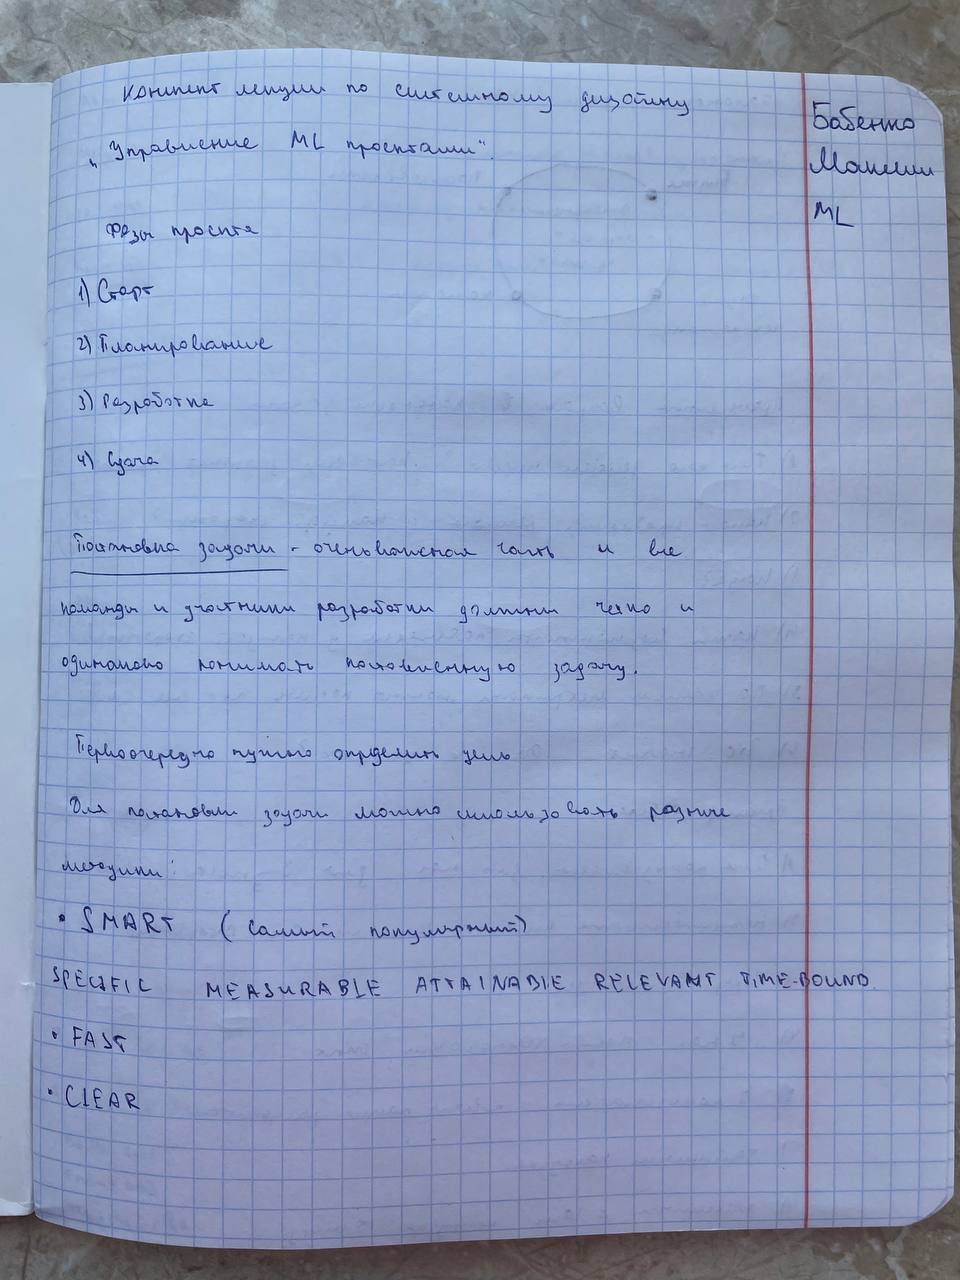 Конспект лекции по системному дизайну
"Управление ML проектами".
Бабенко
Максим
ML
Фазы проекта
1) Старт
2) Планирование
3) Разработка
4) Сдача
Постановка задачи - очень важная часть и все
команды и участники разработки должны четко и
одинаково понимать поставленную задачу.
Первоочередно нужно определить цель
Для постановки задачи можно использовать разные
методики:
• SMART (самый популярный)
SPECIFIC MEASURABLE ATTAINABLE RELEVANT TIME-BOUND
• FAST
• CLEAR